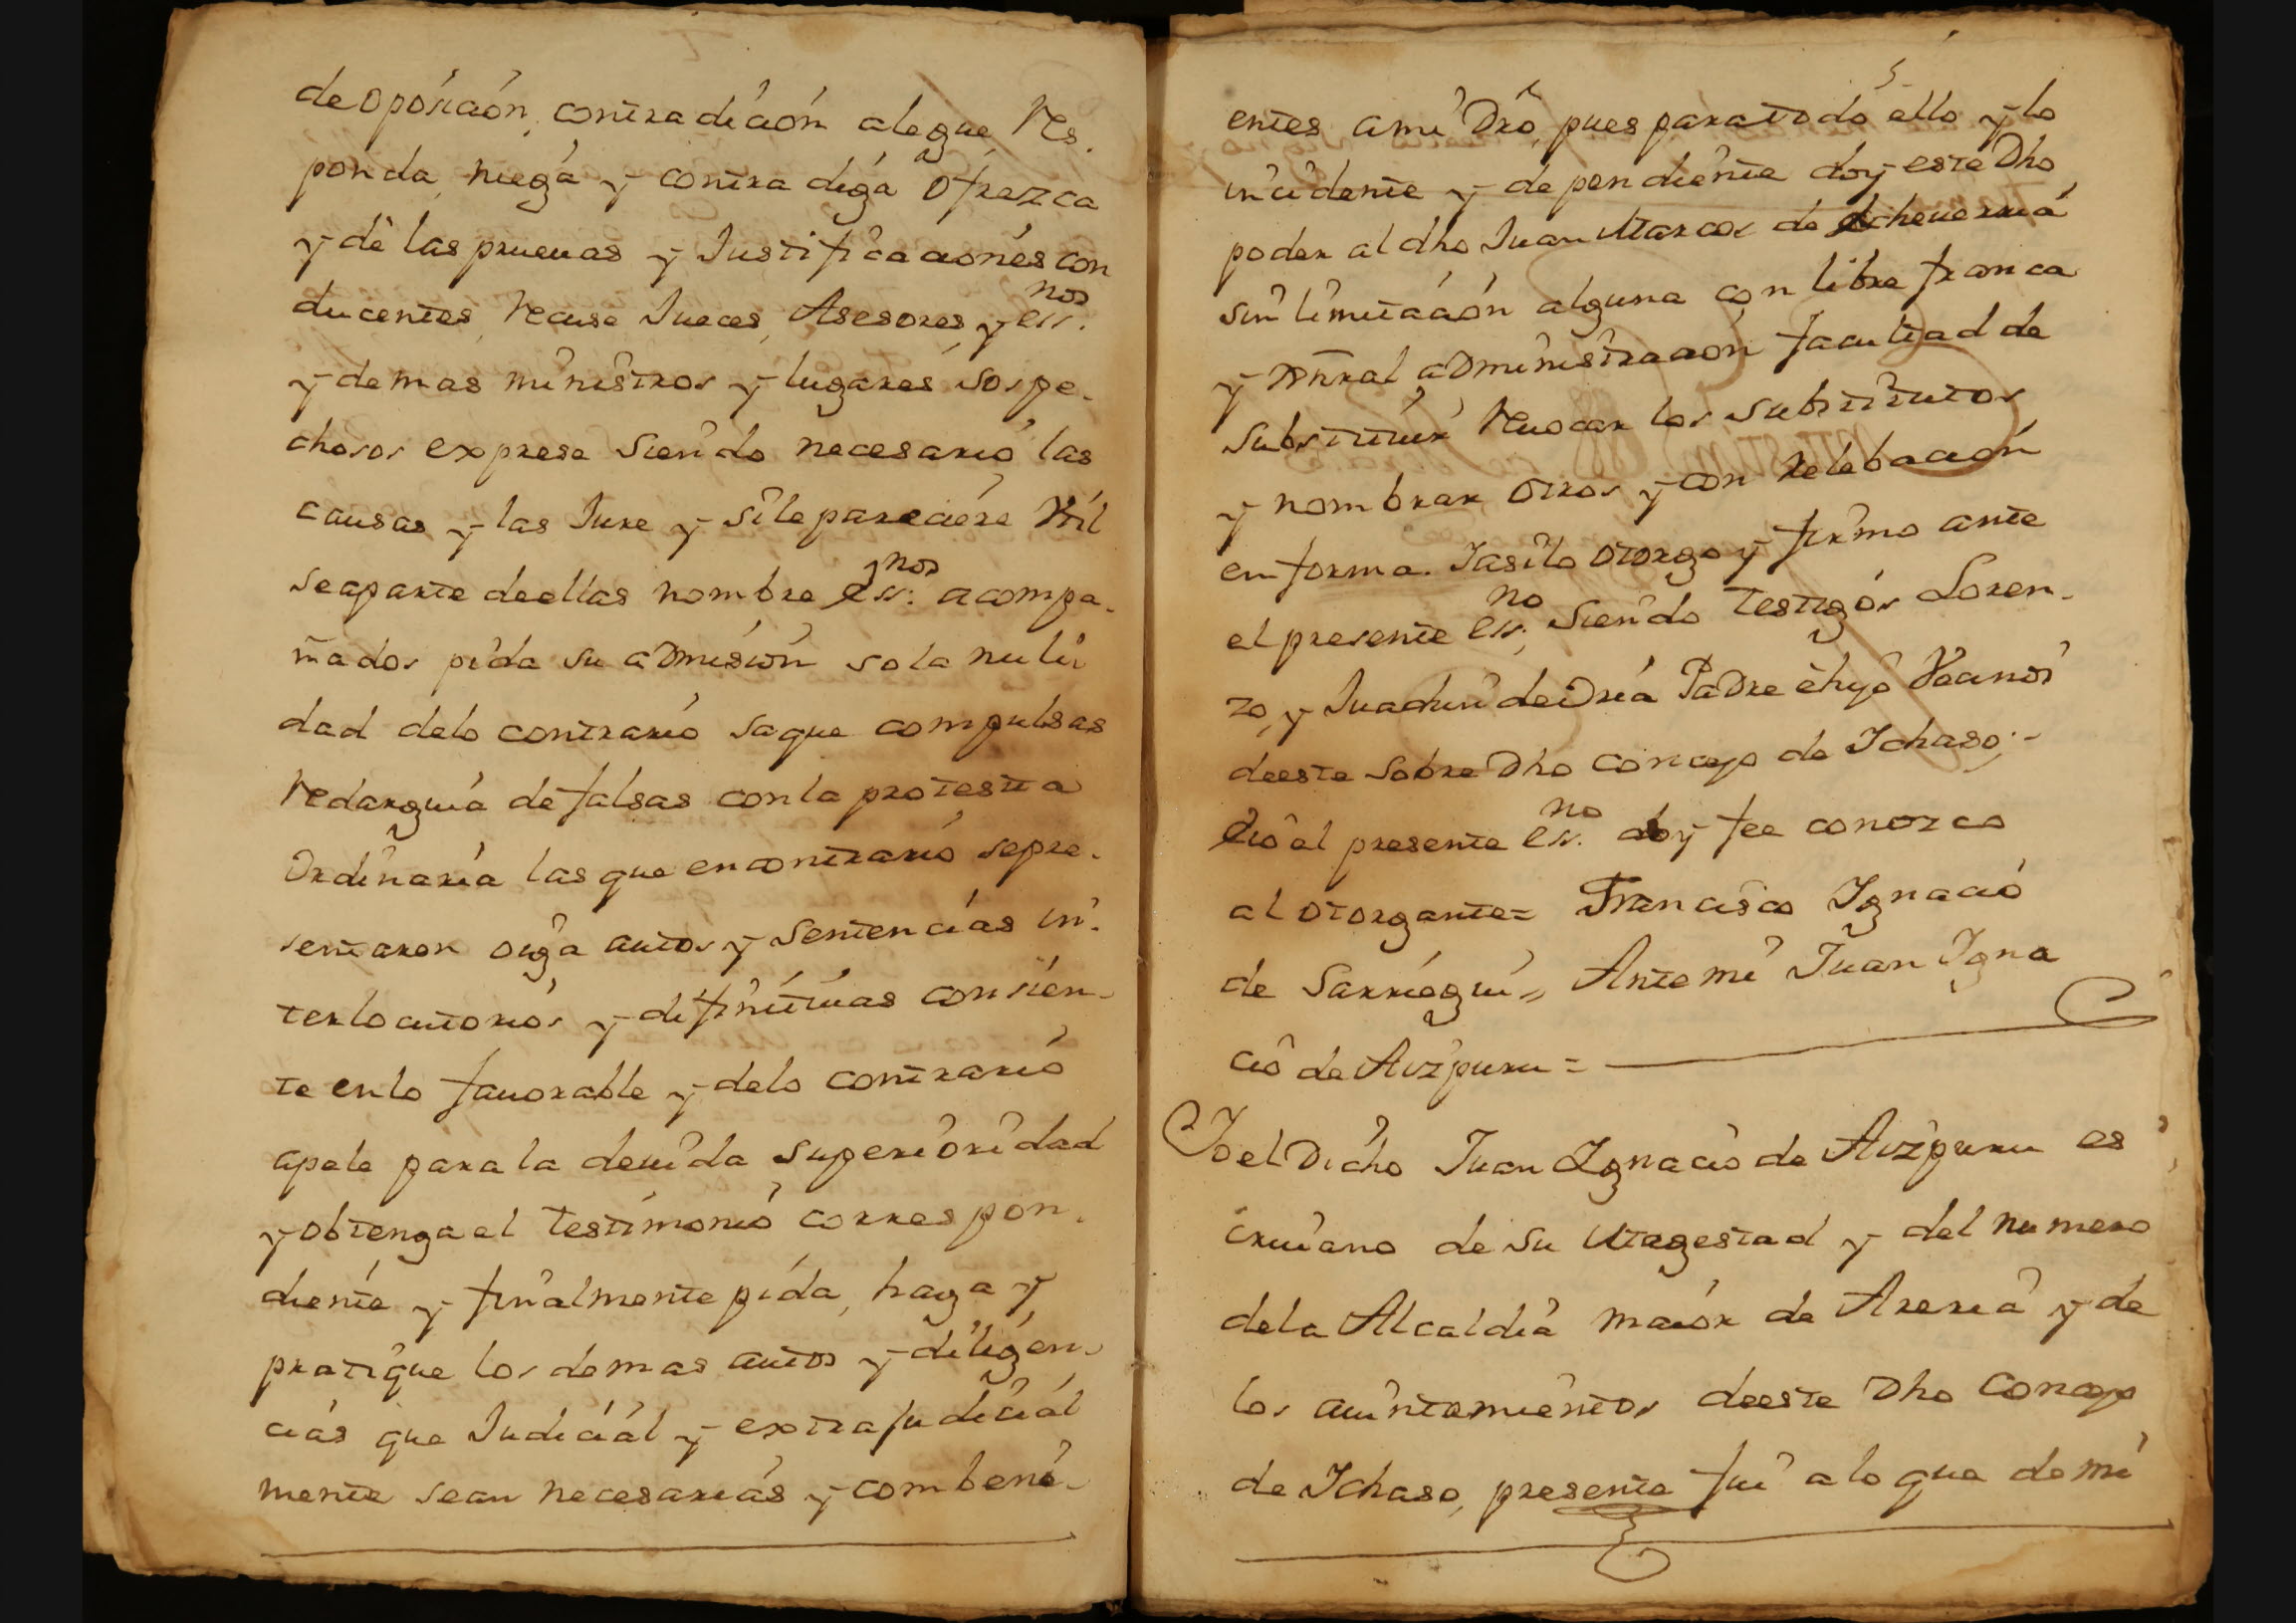 de oposición, contradición alegue, Res.
ponda, niega y contradiga ofrezca
y dè las prueuas y Justificaciones con
ducentes, recuse Jueces, Asesores, y ess.nos
y demas ministros y lugares sospe-
chosos exprese siendo necesario las
causas y las Jure y si le pareciere Util
se aparte de ellas nombre ess.nos acompa-
ñados pida su admision so la nuli
dad delo contrario saque compulsas
redarguia de falsas con la protesta
Ordinaria las que en contrario sepre-
sentaren oiga autos y Sentencias in-
terlocutorios y difinitiuas consien-
te en lo fauorable y delo contrario
apele para la deuida superioridad
y obtenga el testimonio correspon-
diente y finalmente pida, haga y
pratique los demas autos y diligen-
cias que Judicial y extrajudicial
mente sean necesarias y combeni-
5
entes a mi Dro, pues para todo ello y lo
incidente y dependiente doy este Dho
poder al dho Juan Marcos de Echeuerria
sin limitación alguna con libre franca
y Gnral administracion facultad de
substituir Reuocar los substitutos
y nombrar otros y con relebación
en forma. Iasilo otorgo y firmo ante
el presente ess.no siendo testigos Loren-
zo, y Juachin de Oria Padre è hijo Vecinos
de este sobre Dho concejo de Ichaso;-
Eio el presente ess.no doy fee conozco
al otorgante= Francisco Ignacio
de Sarriegui,, Ante mi Juan Igna
cio de Aizpuru =
Yo el Dicho Juan Ignacio de Aizpuru es
criuano de su Magestad y del numero
dela Alcaldia maior de Areria y de
los aiuntamientos de este Dho Concejo
de Ichaso, presente fui a lo que de mi